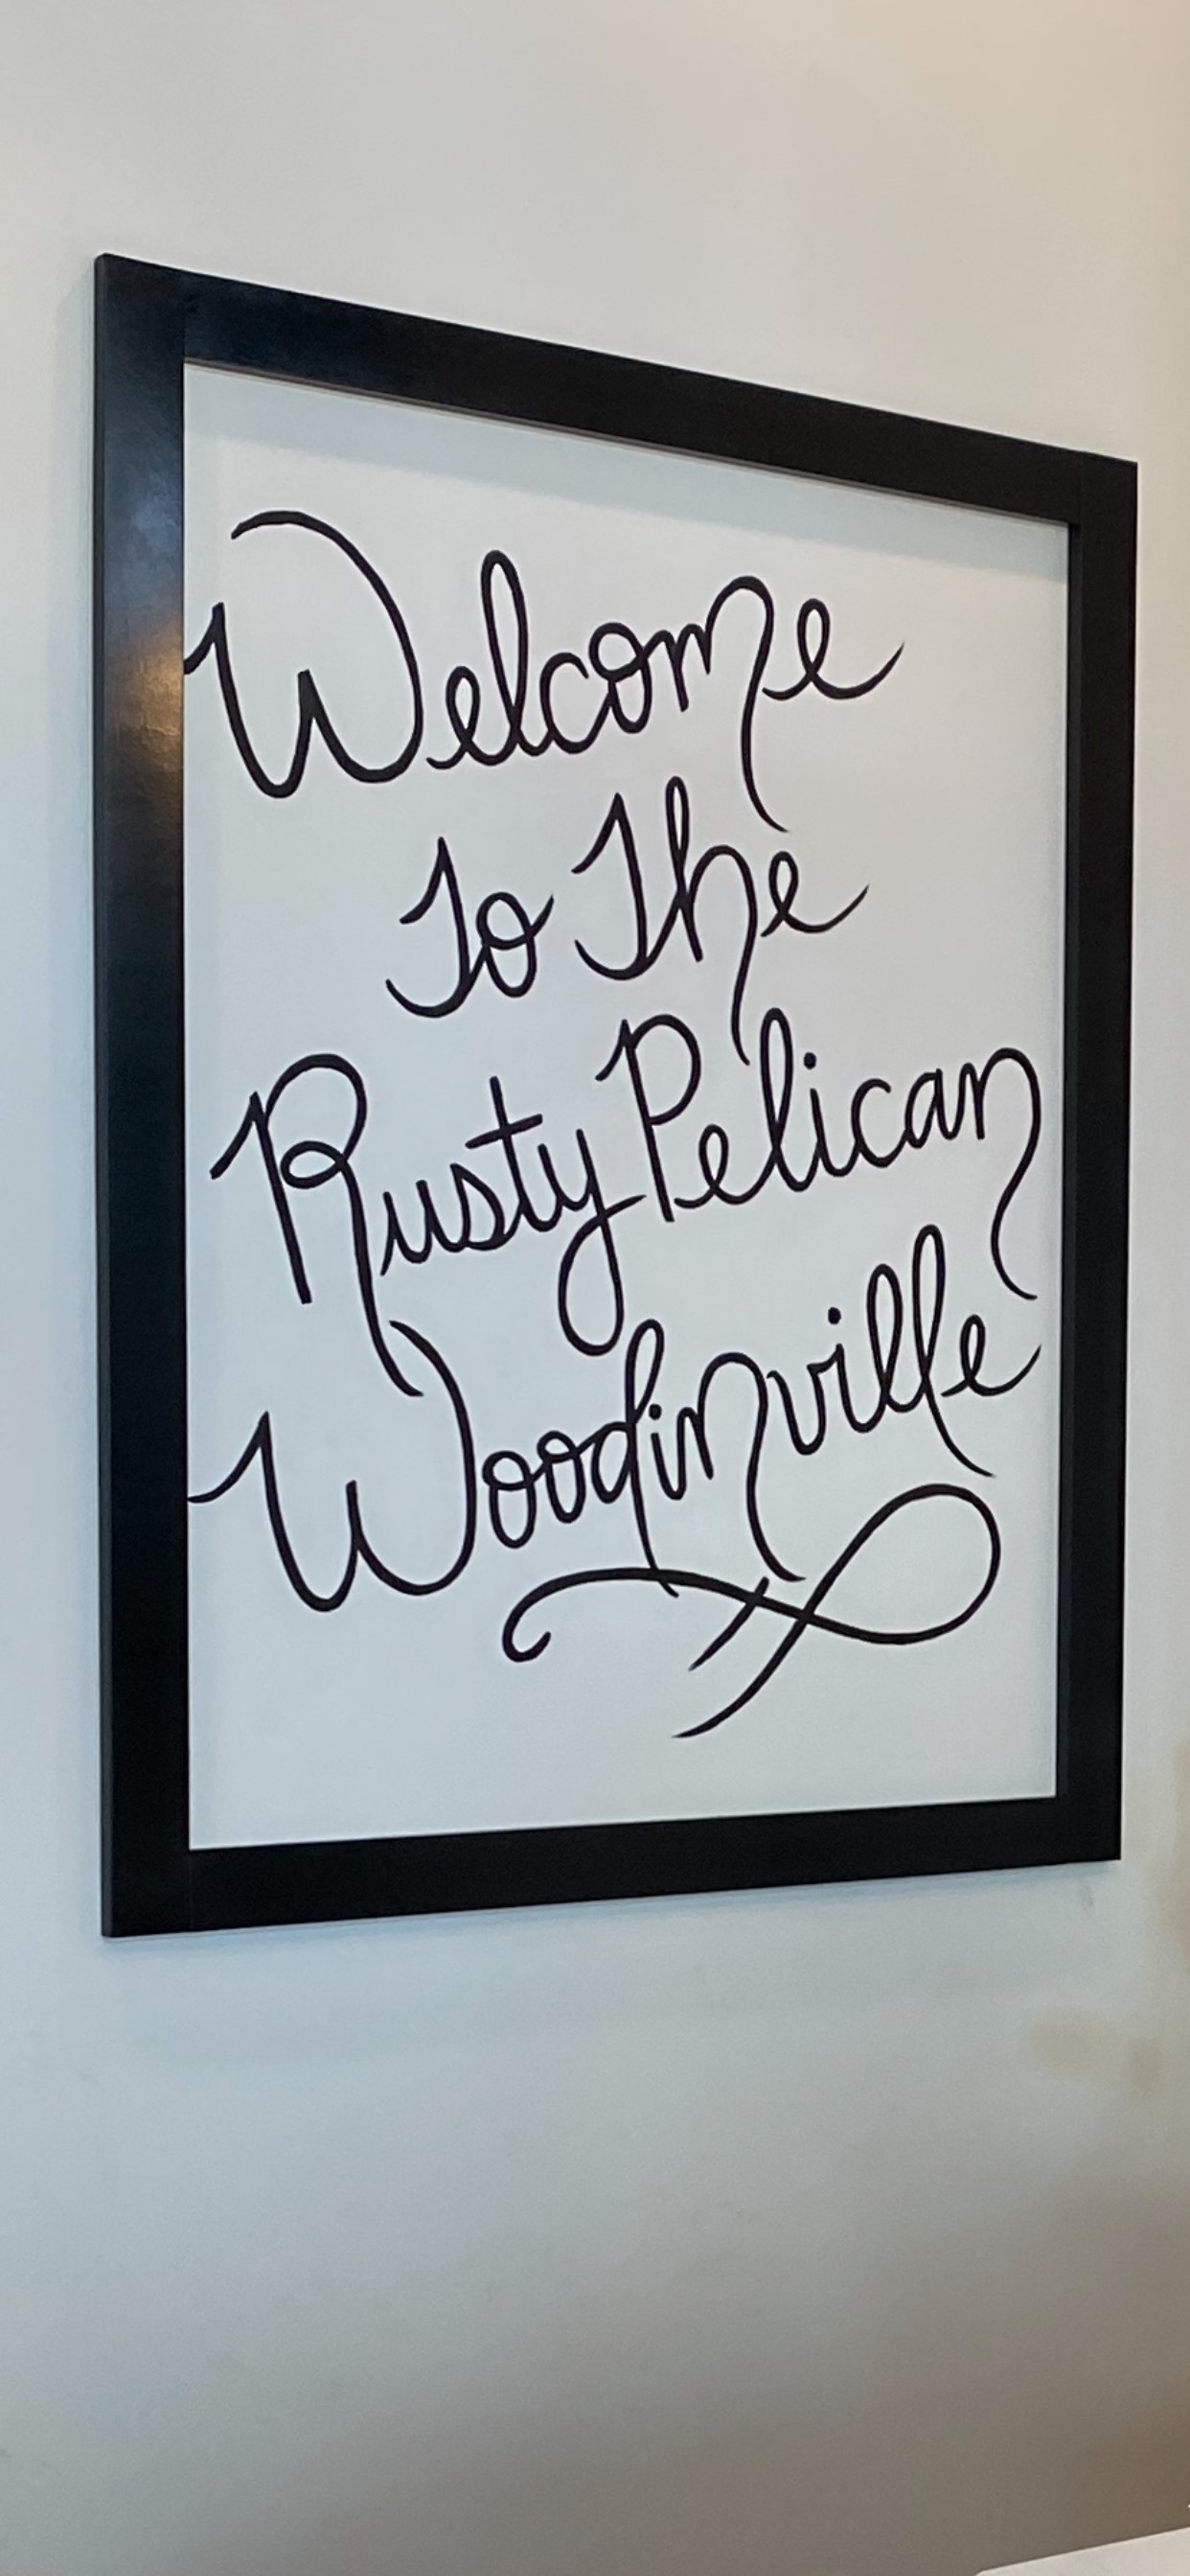 Welcome
To The
Rusty Pelican
Woodinville